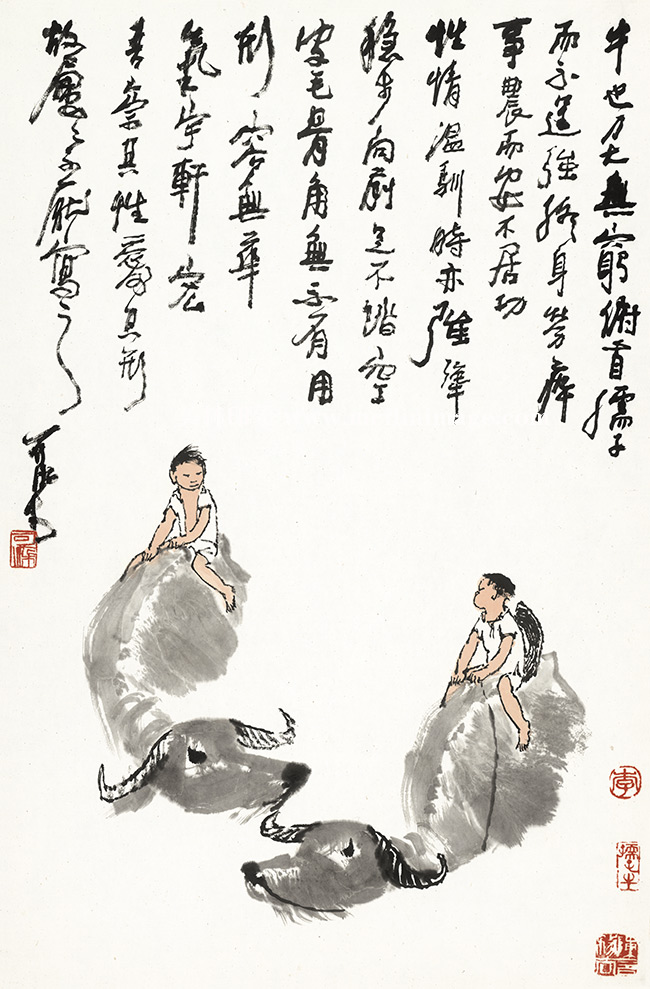 牛也力大無窮俯首孺子
而不逞強終身勞瘁
事農而安不居功
性情温馴時亦強犟
穩步向前足不踏空
皮毛骨角無不有用
形容無華
氣宇軒宏
吾崇其性愛其形
故屢々不厭寫之
可染
可染
李